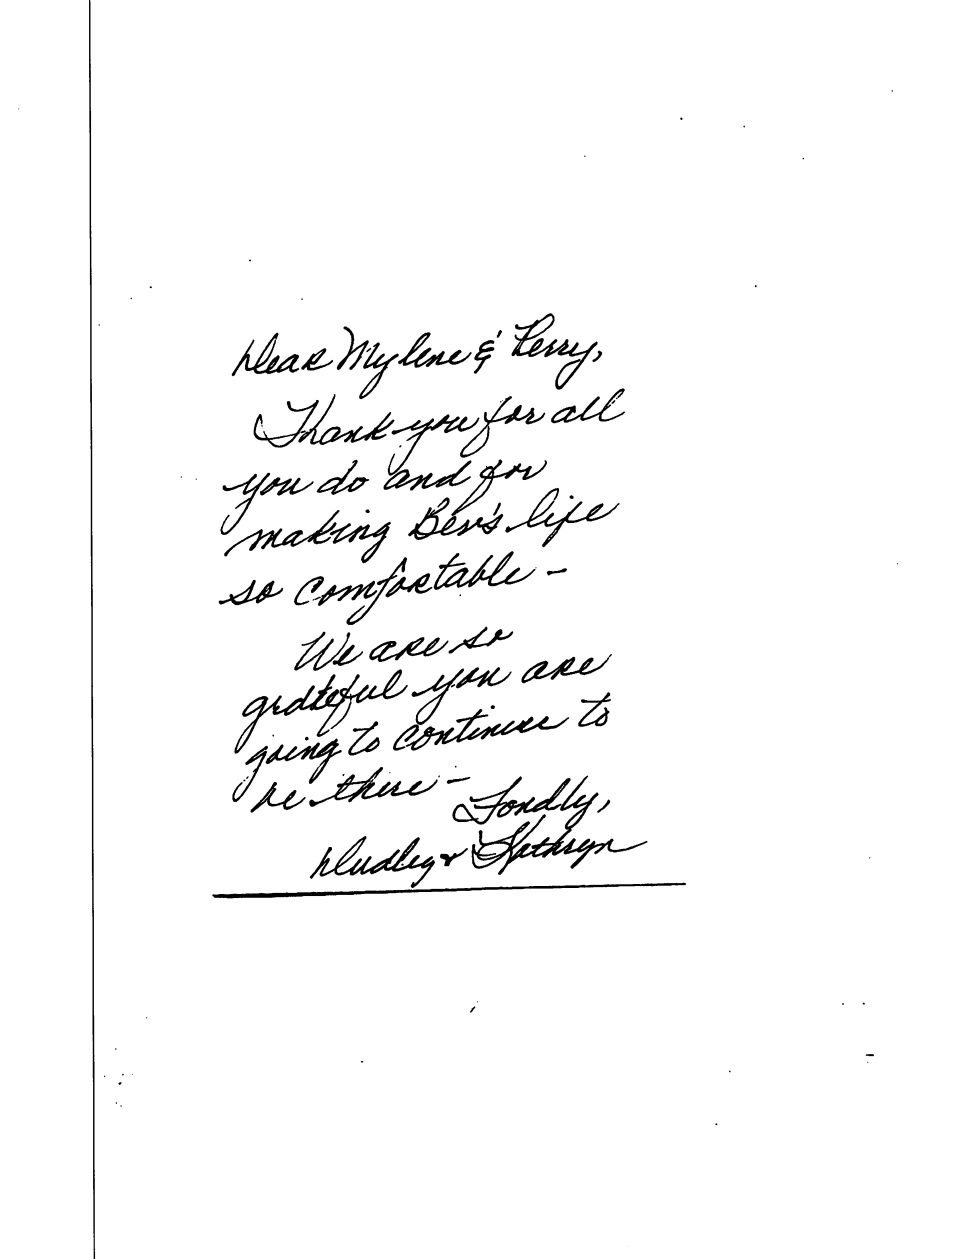 Dear Mylene & Perry,
Thank you for all
you do and for
making Bev's life
so comfortable -
We are so
grateful you are
going to continue to
be there -
Fondly,
Dudley & Kathryn